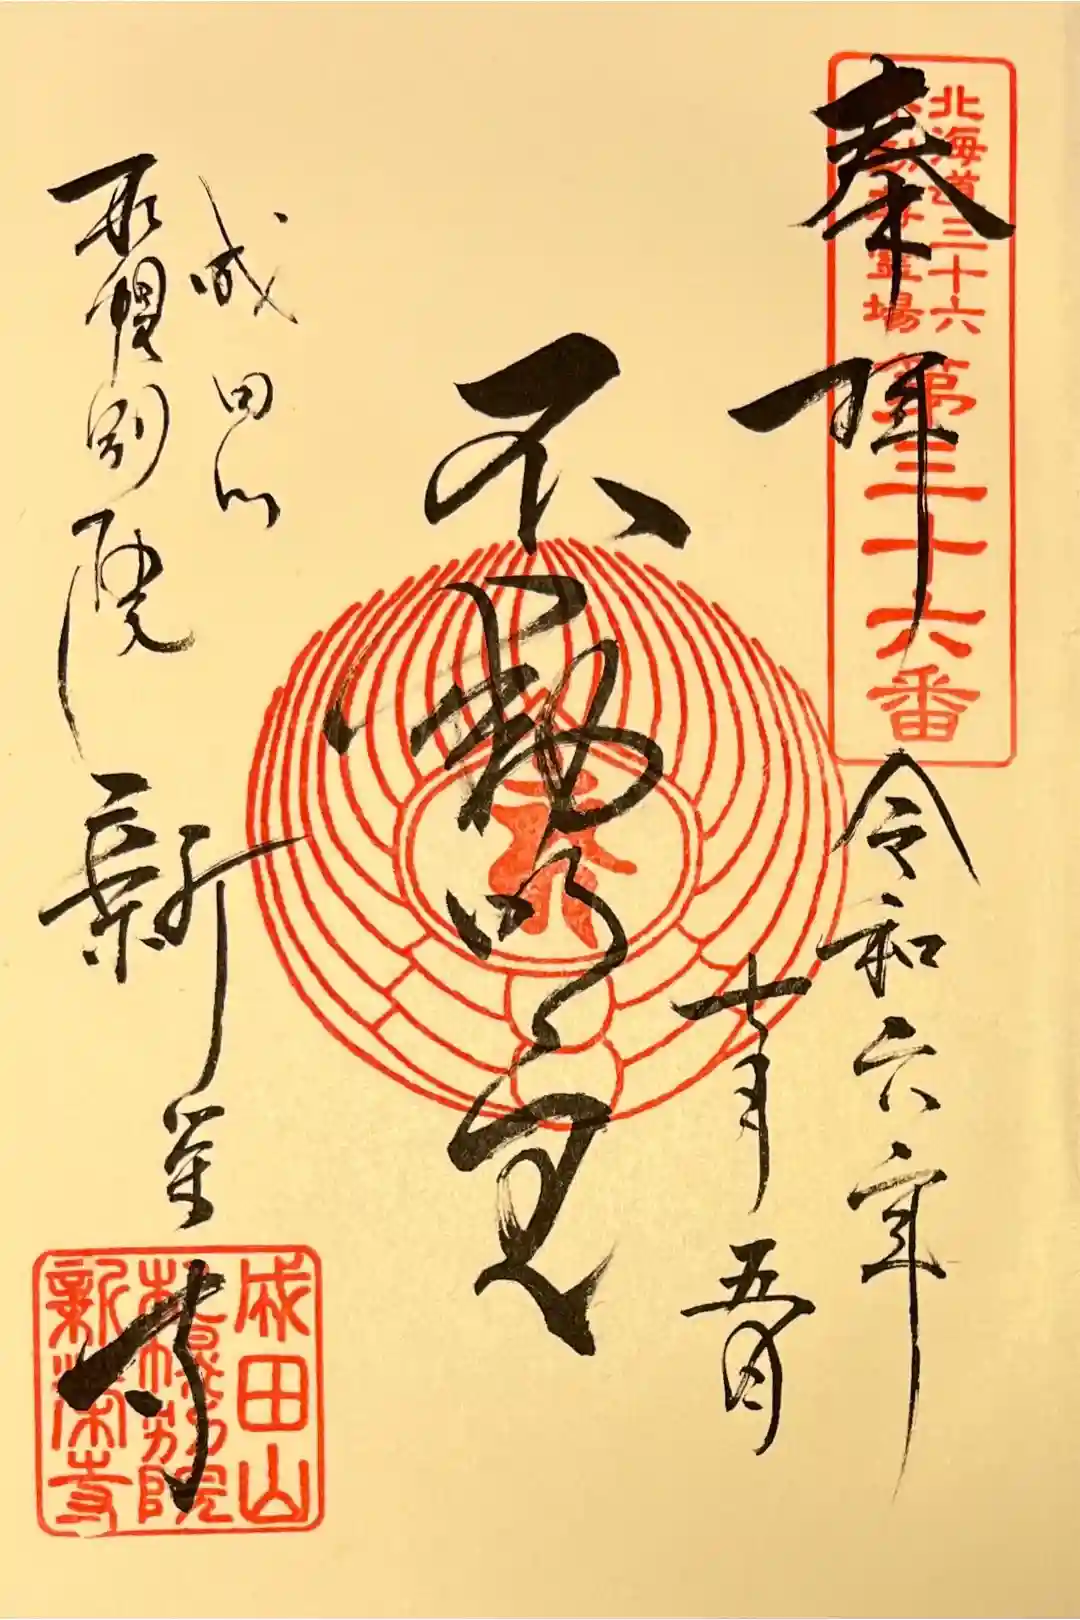 北海道三十六
不動尊霊場
第三十六番
奉拝
令和六年
十月五日
不動明王
成田山
札幌別院
新栄寺
成田山
札幌別院
新栄寺